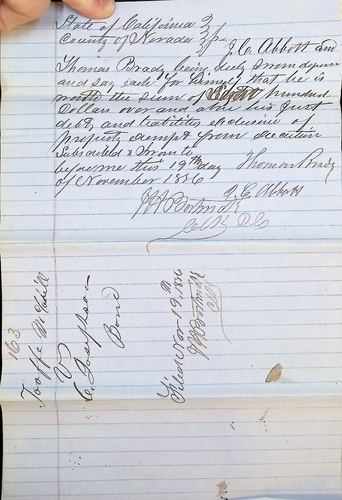 State of California }
County of Nevada } J. C. Abbott and
Thomas Brady being duly sworn depose
and say each for himself that he is
worth the sum of hundred
dollars over and above his just
debts and liabilities exclusive of
property exempt from execution
Subscribed & sworn to
before me this 19th day Thomas Brady
of November 1856 J. C. Abbott
163
V
Bond
Filed Nov 19, 1856